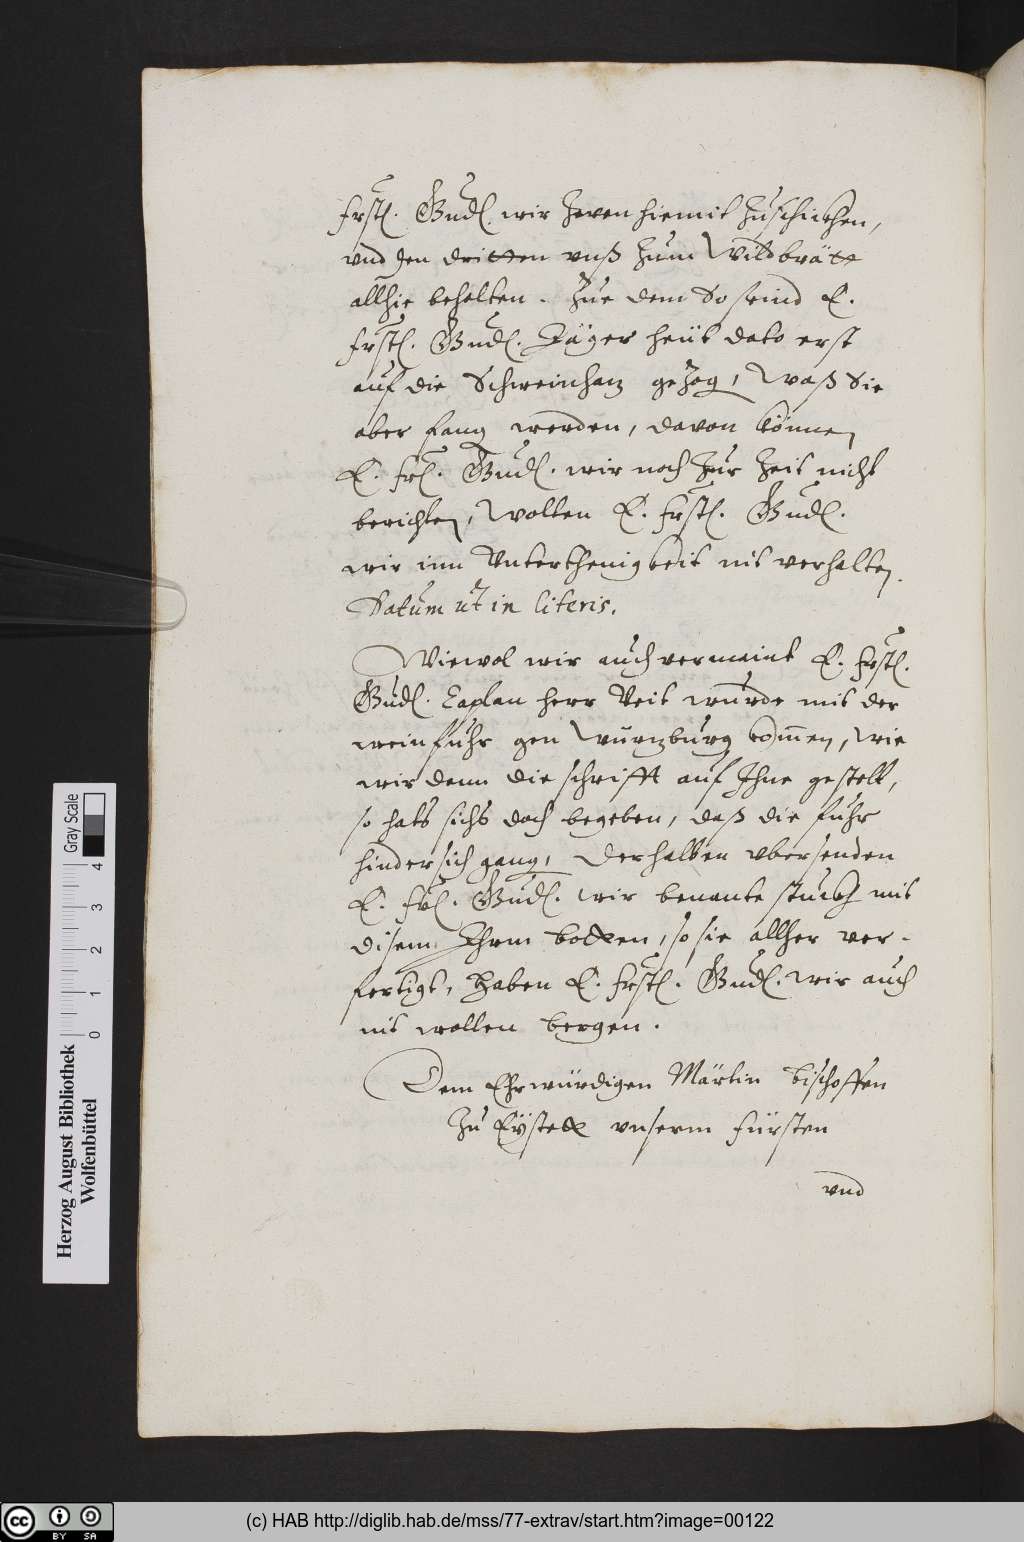 frstl. Gndl. wir zwen hiemit zuschickhen,
vnd den dritten vnß zum Wildbrätt
allhie behalten. Zue dem So seind E.
frstl. Gndl. Jäger heüt dato erst
auf die Schweinhatz gezog, Waß Sie
aber fang werden, davon können
E. frl. Gndl. wir noch zur Zeit nicht
berichten, Wolten E. frstl. Gndl.
wir inn Vnterthenigkeit nit verhalten.
Datum ut in literis.
Wiewol wir auch vermaint E. frstl.
Gndl. Caplan herr Veit wurde mit der
weinfuhr gen Wurtzburg kommen, wie
wir denn die schrifft auf Ihne gestelt,
so hats sichs doch begeben, daß die fuhr
hindersich gang, Derhalben vbersenden
E. frl. Gndl. wir benante stuckh mit
disem Ihrem botten, so sie allher ver-
fertigt, Haben E. frstl. Gndl. wir auch
nit wollen bergen.
Dem Ehrwürdigen Märtin bischoffen
Zu Eystett vnserm fürsten
vnd
Herzog August Bibliothek
Wolfenbüttel
Gray Scale
0 1 2 3 4
CC BY SA
(c) HAB http://diglib.hab.de/mss/77-extrav/start.htm?image=00122